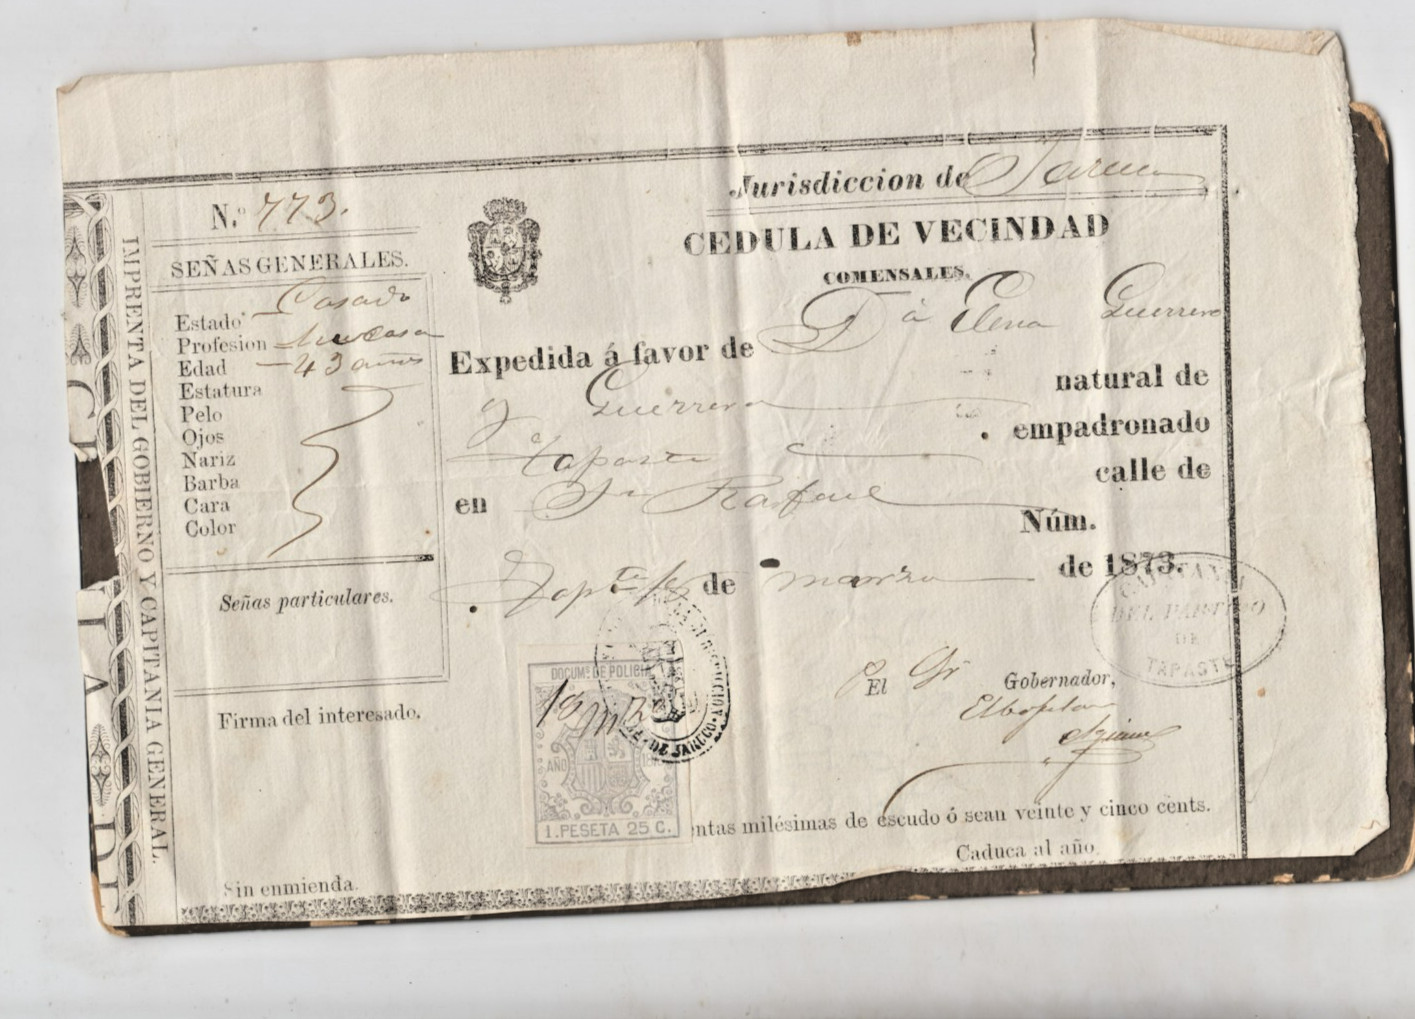 IMPRENTA DEL GOBIERNO Y CAPITANIA GENERAL.
N.º 773.
SEÑAS GENERALES.
Estado Casado
Profesion su casa
Edad 43 años
Estatura
Pelo
Ojos
Nariz
Barba
Cara
Color
Señas particulares.
Firma del interesado.
Sin enmienda.
Jurisdiccion de Jaruco
CEDULA DE VECINDAD
COMENSALES.
Expedida á favor de Dª Elena Guerrero
y Guerrero natural de
Tapaste empadronado
en Sn Rafael calle de
Núm.
Tapte 18 de marzo de 1873.
CAPITANIA
DEL PARTIDO
DE
TAPASTE
El Gobernador,
DOCUMº DE POLICIA
AÑO
1. PESETA 25 C.
DE JARUCO
entas milésimas de escudo ó sean veinte y cinco cents.
Caduca al año.